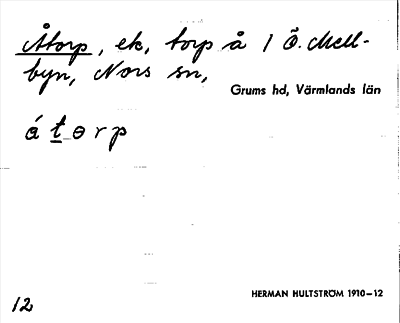 Åtorp, ek, torp å 1 Ö. Mell-
byn, Nors sn,
Grums hd, Värmlands län
á t ɵ r p
HERMAN HULTSTRÖM 1910-12
12